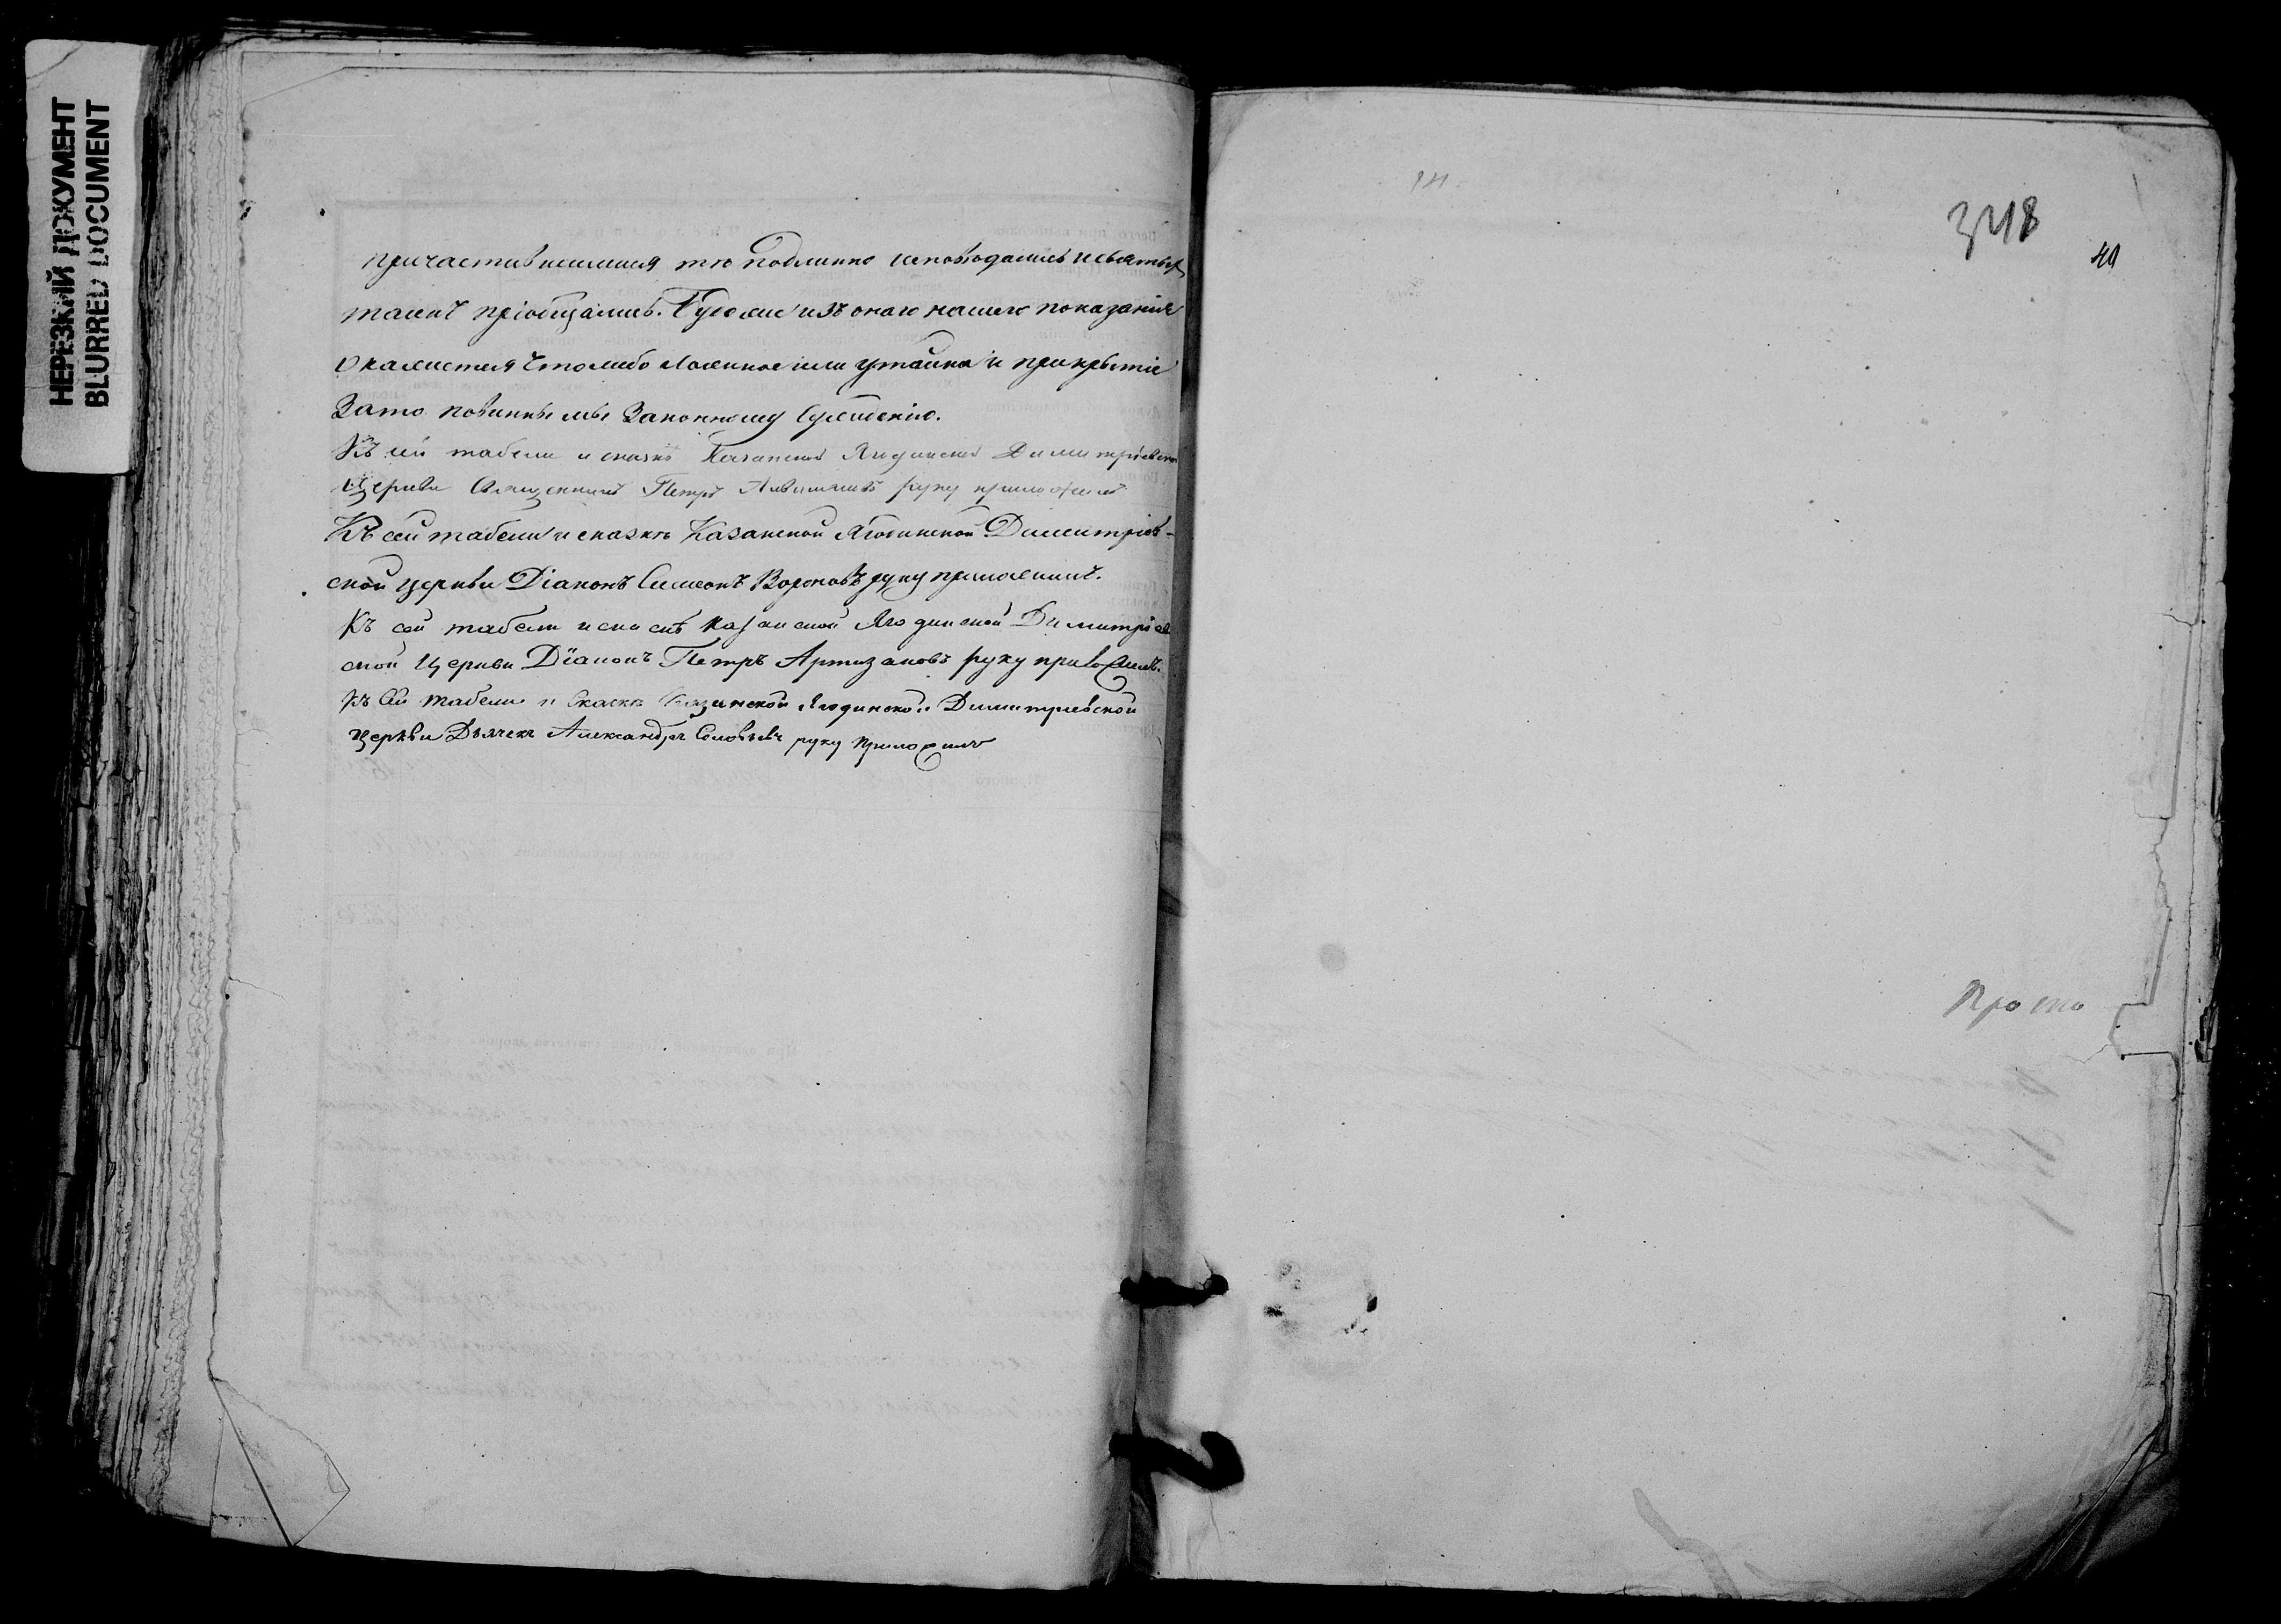 НЕРЕЗКИЙ ДОКУМЕНТ
BLURRED DOCUMENT
причастившимися тѣ подлинно исповѣдались и святыхъ
таинъ пріобщались. Буде же изъ онаго нашего показанія
окажется что либо ложное или утайка и прикрытіе
Зато повинны мы Законному Сужденію.
Къ сей табели и сказкѣ Казанской Ягодинской Димитріевской
Церкви Священникъ Петръ руку приложилъ
Къ сей табели и сказкѣ Казанской Ягодинской Димитріев-
ской церкви Діаконъ Симеонъ Вороновъ руку приложилъ.
Къ сей табели и скаскѣ Казанской Ягодинской Димитріев
ской Церкви Діаконъ Петръ Артизановъ руку приложилъ.
Къ Сей табели и Скаскѣ Казанской Ягодинской Димитріевской
церкви Дьячекъ Александръ Соловьевъ руку приложилъ
348